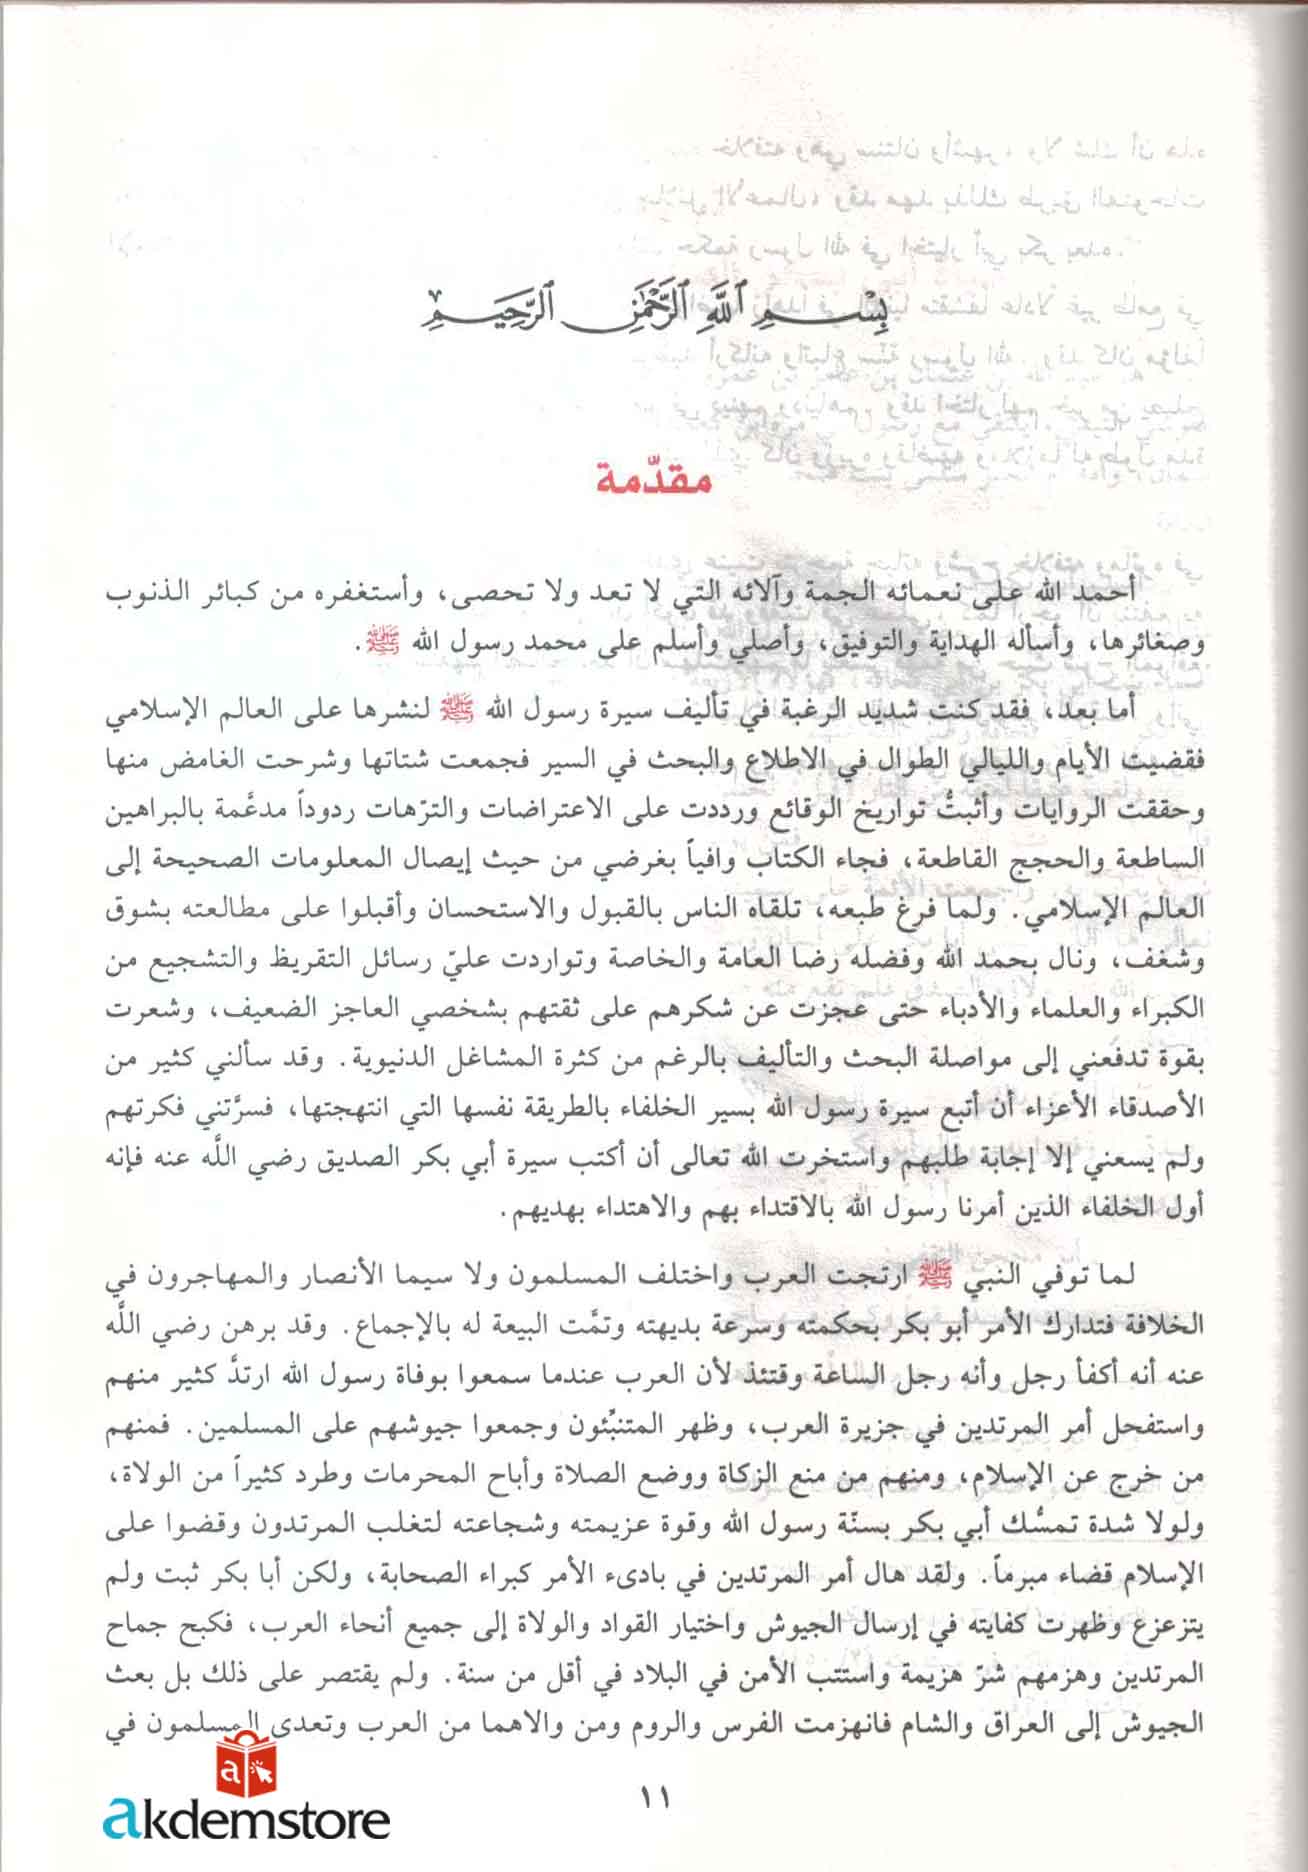 بِسْمِ ٱللَّهِ ٱلرَّحْمَٰنِ ٱلرَّحِيمِ
مقدّمة
أحمد الله على نعمائه الجمة وآلائه التي لا تعد ولا تحصى، وأستغفره من كبائر الذنوب
وصغائرها، وأسأله الهداية والتوفيق، وأصلي وأسلم على محمد رسول الله ﷺ.
أما بعد، فقد كنت شديد الرغبة في تأليف سيرة رسول الله ﷺ لنشرها على العالم الإسلامي
فقضيت الأيام والليالي الطوال في الاطلاع والبحث في السير فجمعت شتاتها وشرحت الغامض منها
وحققت الروايات وأثبتُّ تواريخ الوقائع ورددت على الاعتراضات والترّهات ردوداً مدعَّمة بالبراهين
الساطعة والحجج القاطعة، فجاء الكتاب وافياً بغرضي من حيث إيصال المعلومات الصحيحة إلى
العالم الإسلامي. ولما فرغ طبعه، تلقاه الناس بالقبول والاستحسان وأقبلوا على مطالعته بشوق
وشغف، ونال بحمد الله وفضله رضا العامة والخاصة وتواردت عليّ رسائل التقريظ والتشجيع من
الكبراء والعلماء والأدباء حتى عجزت عن شكرهم على ثقتهم بشخصي العاجز الضعيف، وشعرت
بقوة تدفعني إلى مواصلة البحث والتأليف بالرغم من كثرة المشاغل الدنيوية. وقد سألني كثير من
الأصدقاء الأعزاء أن أتبع سيرة رسول الله بسير الخلفاء بالطريقة نفسها التي انتهجتها، فسرَّتني فكرتهم
ولم يسعني إلا إجابة طلبهم واستخرت الله تعالى أن أكتب سيرة أبي بكر الصديق رضي اللَّه عنه فإنه
أول الخلفاء الذين أمرنا رسول الله بالاقتداء بهم والاهتداء بهديهم.
لما توفي النبي ﷺ ارتجت العرب واختلف المسلمون ولا سيما الأنصار والمهاجرون في
الخلافة فتدارك الأمر أبو بكر بحكمته وسرعة بديهته وتمَّت البيعة له بالإجماع. وقد برهن رضي اللَّه
عنه أنه أكفأ رجل وأنه رجل الساعة وقتئذ لأن العرب عندما سمعوا بوفاة رسول الله ارتدَّ كثير منهم
واستفحل أمر المرتدين في جزيرة العرب، وظهر المتنبِّئون وجمعوا جيوشهم على المسلمين. فمنهم
من خرج عن الإسلام، ومنهم من منع الزكاة ووضع الصلاة وأباح المحرمات وطرد كثيراً من الولاة،
ولولا شدة تمسُّك أبي بكر بسنّة رسول الله وقوة عزيمته وشجاعته لتغلب المرتدون وقضوا على
الإسلام قضاء مبرماً. ولقد هال أمر المرتدين في بادىء الأمر كبراء الصحابة، ولكن أبا بكر ثبت ولم
يتزعزع وظهرت كفايته في إرسال الجيوش واختيار القواد والولاة إلى جميع أنحاء العرب، فكبح جماح
المرتدين وهزمهم شرّ هزيمة واستتب الأمن في البلاد في أقل من سنة. ولم يقتصر على ذلك بل بعث
الجيوش إلى العراق والشام فانهزمت الفرس والروم ومن والاهما من العرب وتعدى المسلمون في
١١
a
akdemstore